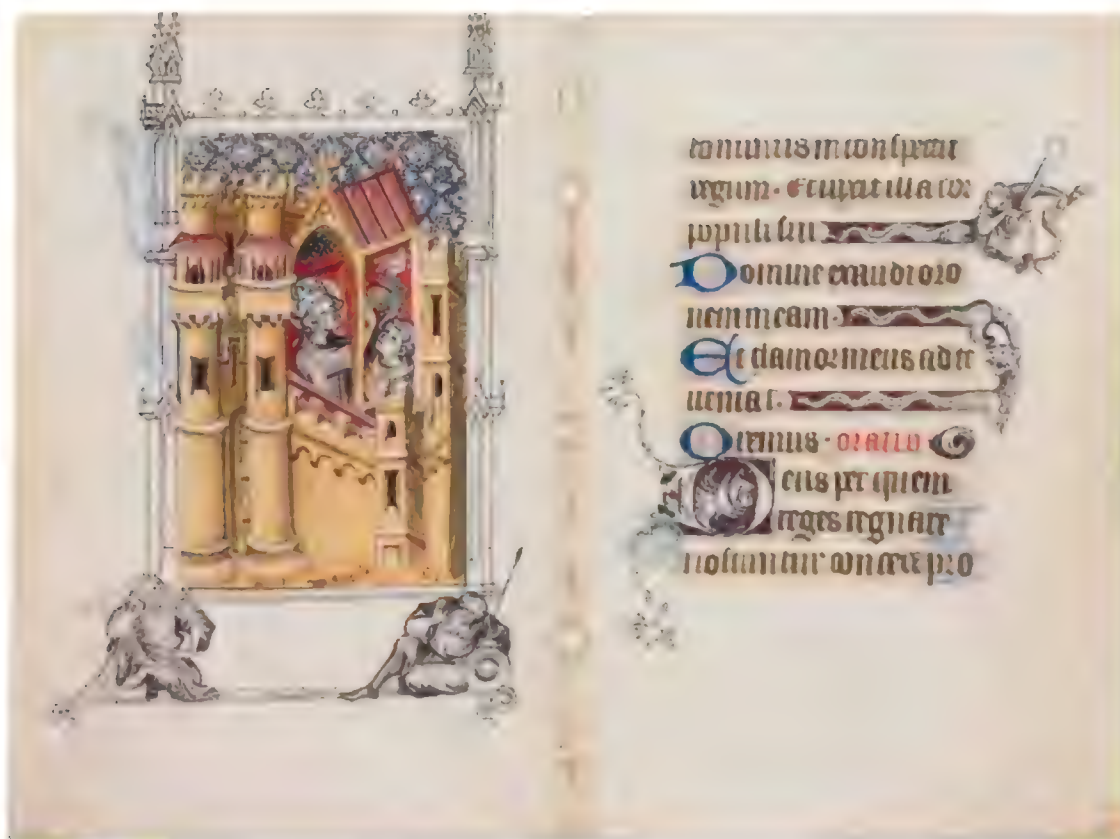 in conspectu
regum. Et illa cor
populi sui
Domine exaudi oro
nem meam.
Et clamor meus ad te
ueniat.
Oremus. oratio
Deus per quem
reges regnare
noscuntur concede pro